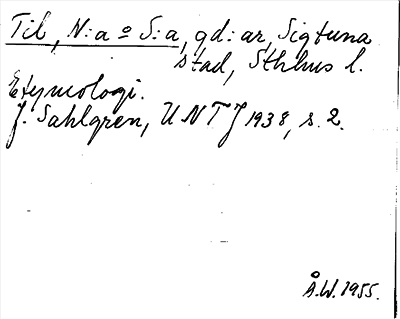 Til, N:a o S:a, gd:ar, Sigtuna
stad, Sthlms l.
Etymologi.
J. Sahlgren, UNTJ 1938, s. 2.
Å.W. 1955.